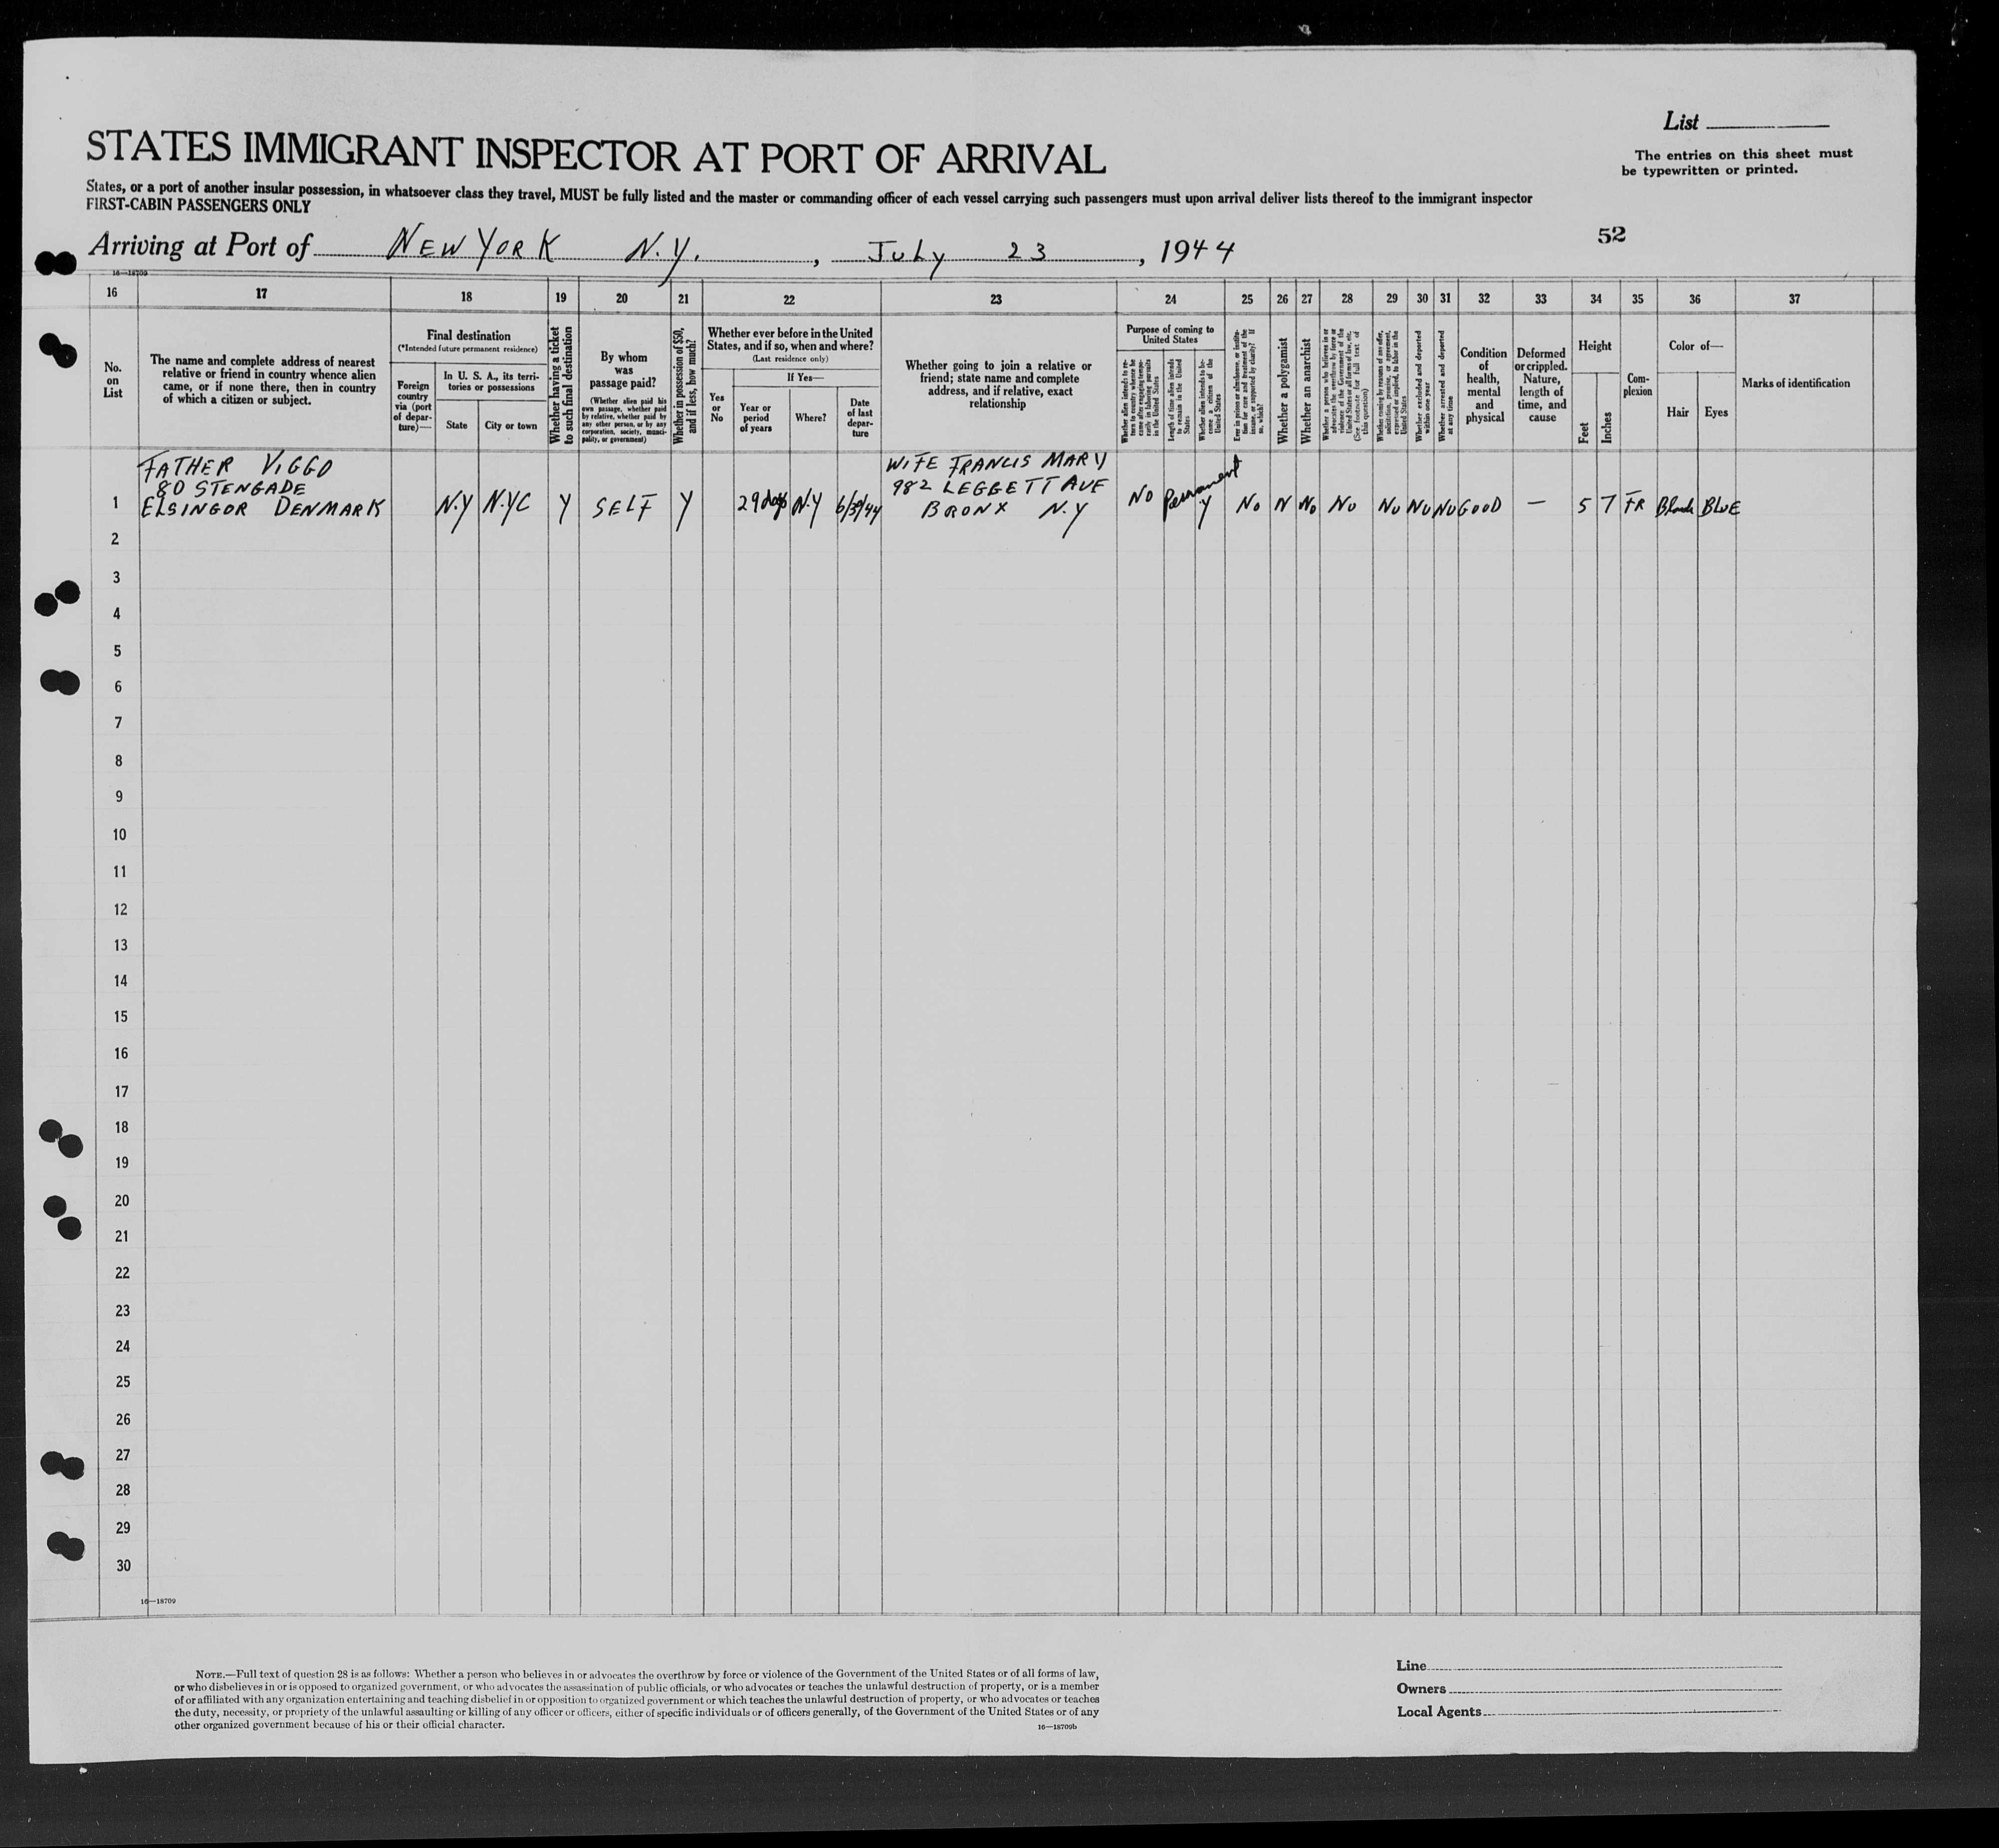 List
The entries on this sheet must
be typewritten or printed.
STATES IMMIGRANT INSPECTOR AT PORT OF ARRIVAL
States, or a port of another insular possession, in whatsoever class they travel, MUST be fully listed and the master or commanding officer of each vessel carrying such passengers must upon arrival deliver lists thereof to the immigrant inspector
FIRST-CABIN PASSENGERS ONLY
52
Arriving at Port of NEW YORK N.Y. , JULY 23 , 1944
16—18709
16 17 18 19 20 21 22 23 24 25 26 27 28 29 30 31 32 33 34 35 36 37
No.
on
List
The name and complete address of nearest
relative or friend in country whence alien
came, or if none there, then in country
of which a citizen or subject.
Final destination
(*Intended future permanent residence)
Foreign
country
via (port
of depar-
ture)—
In U. S. A., its terri-
tories or possessions
State
City or town
Whether having a ticket
to such final destination
By whom
was
passage paid?
(Whether alien paid his
own passage, whether paid
by relative, whether paid by
any other person, or by any
corporation, society, munici-
pality, or government)
Whether in possession of $50,
and if less, how much?
Whether ever before in the United
States, and if so, when and where?
(Last residence only)
Yes
or
No
If Yes—
Year or
period
of years
Where?
Date
of last
depar-
ture
Whether going to join a relative or
friend; state name and complete
address, and if relative, exact
relationship
Purpose of coming to
United States
Whether alien intends to re-
turn to country whence he
came after engaging tempo-
rarily in laboring pursuits
in the United States
Length of time alien intends
to remain in the United
States
Whether alien intends to be-
come a citizen of the
United States
Ever in prison or almshouse, or institu-
tion for care and treatment of the
insane, or supported by charity? If
so, which?
Whether a polygamist
Whether an anarchist
Whether a person who believes in or
advocates the overthrow by force or
violence of the Government of the
United States or all forms of law, etc.
(See footnote for full text of
this question)
Whether coming by reasons of any offer,
solicitation, promise, or agreement,
expressed or implied, to labor in the
United States
Whether excluded and deported
within one year
Whether arrested and deported
at any time
Condition
of
health,
mental
and
physical
Deformed
or crippled.
Nature,
length of
time, and
cause
Height
Feet
Inches
Com-
plexion
Color of—
Hair
Eyes
Marks of identification
FATHER VIGGO
80 STENGADE
1 ELSINGOR DENMARK N.Y N.YC Y SELF Y 29 days N.Y 6/30/44
WIFE FRANCIS MARY
982 LEGGETT AVE
BRONX N.Y
NO Permanent Y NO N NO NO NO NO NO GOOD — 5 7 FR Blonde BLUE
2
3
4
5
6
7
8
9
10
11
12
13
14
15
16
17
18
19
20
21
22
23
24
25
26
27
28
29
30
16—18709
NOTE.—Full text of question 28 is as follows: Whether a person who believes in or advocates the overthrow by force or violence of the Government of the United States or of all forms of law,
or who disbelieves in or is opposed to organized government, or who advocates the assassination of public officials, or who advocates or teaches the unlawful destruction of property, or is a member
of or affiliated with any organization entertaining and teaching disbelief in or opposition to organized government or which teaches the unlawful destruction of property, or who advocates or teaches
the duty, necessity, or propriety of the unlawful assaulting or killing of any officer or officers, either of specific individuals or of officers generally, of the Government of the United States or of any
other organized government because of his or their official character.
16—18709b
Line
Owners
Local Agents